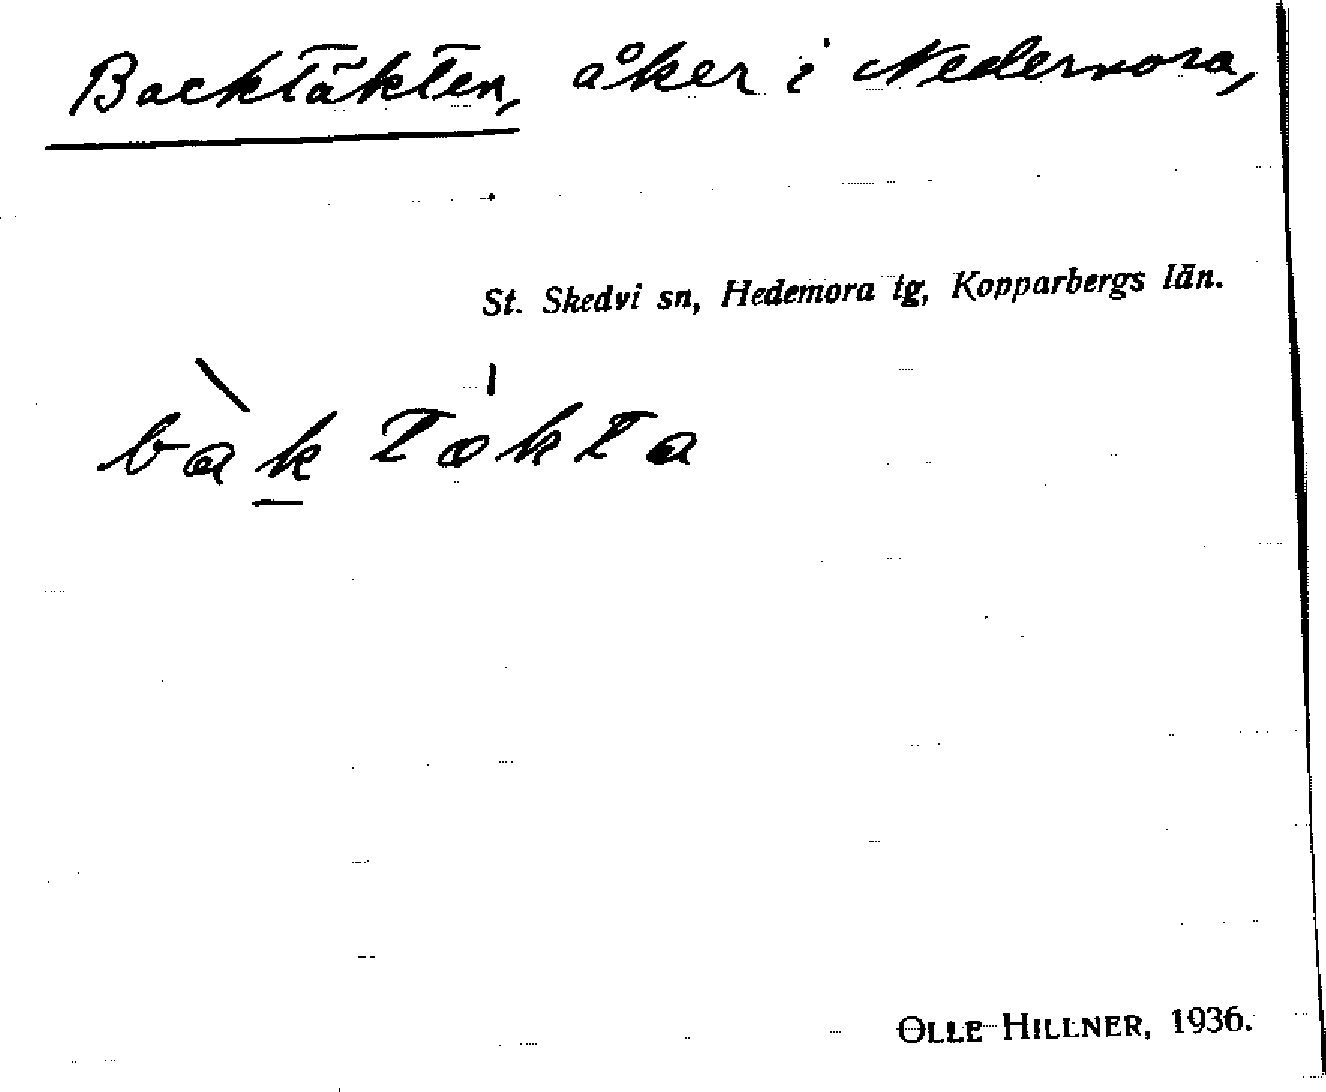 Backtäkten, åker i Nedernora,
St. Skedvi sn, Hedemora tg, Kopparbergs län.
bàk tækta
OLLE HILLNER, 1936.